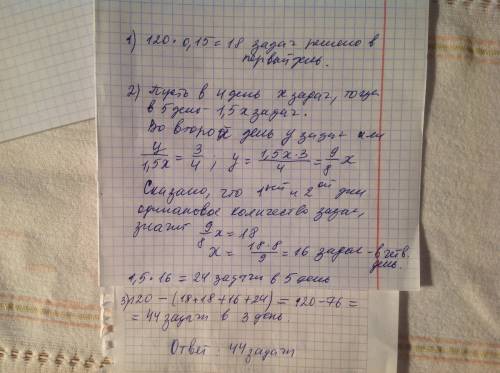 1) 120 · 0,15 = 18 задач решено в
первый день.
2) Пусть в 4 день x задач, тогда
в 5 день - 1,5x задач.
Во второй день y задач или
y/1,5x = 3/4, y = 1,5x·3/4 = 9/8 x
Сказано, что 1ый и 2ой дни
одинаковое количество задач,
значит 9/8 x = 18
x = 18·8/9 = 16 задач - в четв.
день.
1,5 · 16 = 24 задачи в 5 день
3) 120 - (18+18+16+24) = 120-76 =
= 44 задач в 3 день
Ответ: 44 задач